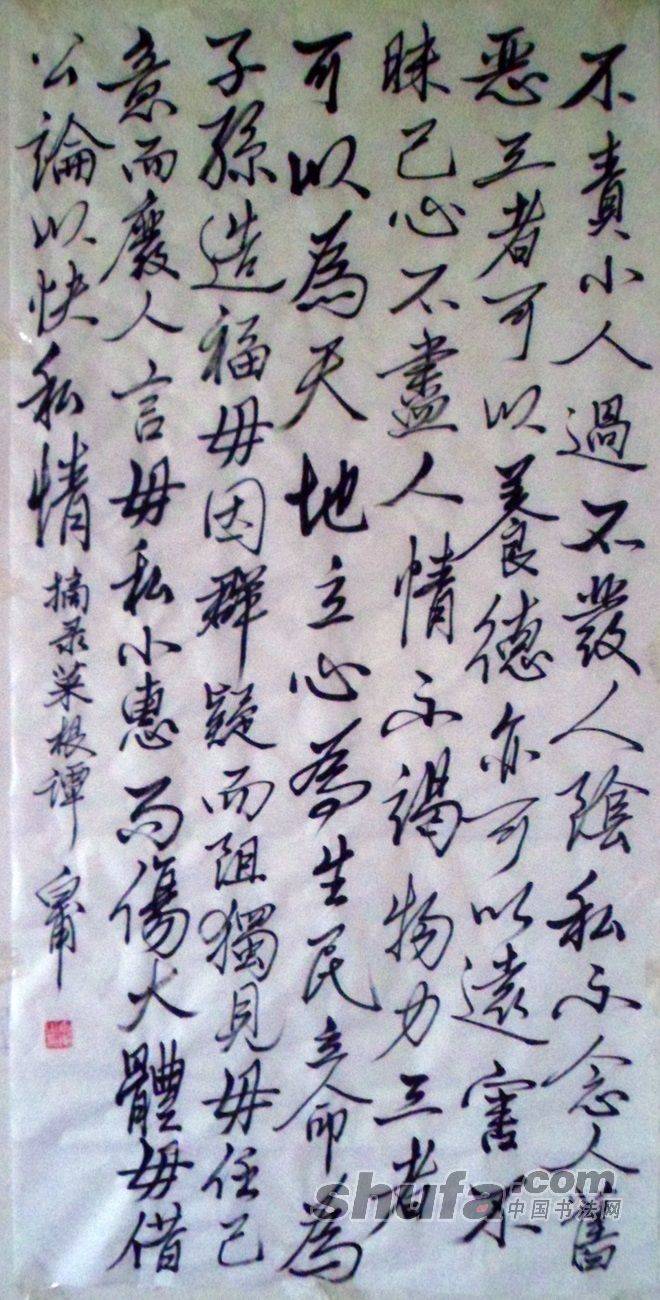 不責小人過不發人陰私不念人舊
惡三者可以養德亦可以遠害不
昧己心不盡人情不竭物力三者
可以為天地立心為生民立命為
子孫造福毋因群疑而阻獨見毋任己
意而廢人言毋私小惠而傷大體毋借
公論以快私情
摘录菜根谭
shufa.com
中国书法网